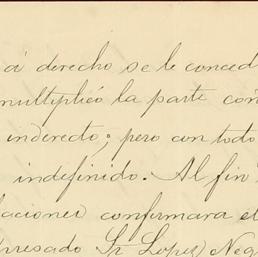 á derecho se le conced
multiplicó la parte con
inderecto; pero con todo
indefinido. Al fin
laciones confirmara el
presado Sr Lopez Neg